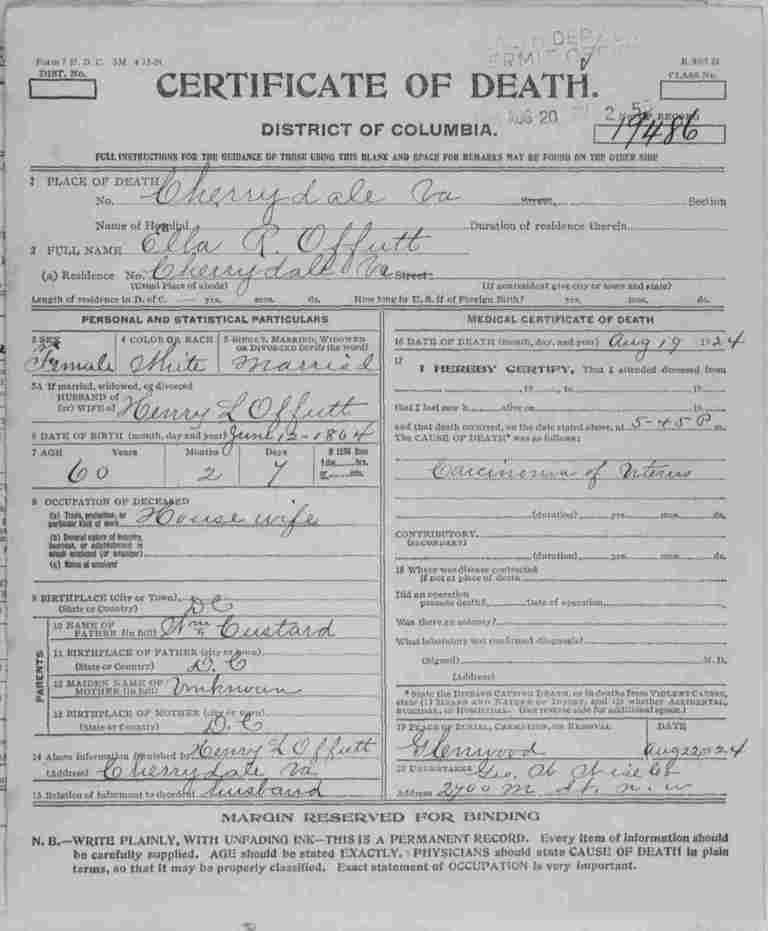 Form 7 H. D. C. 5M 4 15-24
DIST. No.
CLASS No.
CERTIFICATE OF DEATH.
AUG 20
No. OF RECORD
19486
DISTRICT OF COLUMBIA.
FULL INSTRUCTIONS FOR THE GUIDANCE OF THOSE USING THIS BLANK AND SPACE FOR REMARKS MAY BE FOUND ON THE OTHER SIDE
1 PLACE OF DEATH
No. Cherrydale Va Street, Section
Name of Hospital Duration of residence therein
2 FULL NAME Ella R. Offutt
(a) Residence No. Cherrydale Va Street:
(Usual Place of abode) (If nonresident give city or town and state)
Length of residence in D. of C. yrs. mos. ds. How long in U. S. if of Foreign Birth? yrs. mos. ds.
PERSONAL AND STATISTICAL PARTICULARS
3 SEX 4 COLOR OR RACE 5 SINGLE, MARRIED, WIDOWED OR DIVORCED (write the word)
Female White Married
5A If married, widowed, or divorced
HUSBAND of
(or) WIFE of Henry L Offutt
6 DATE OF BIRTH (month, day and year) June 12-1864
7 AGE Years Months Days If LESS than
1 day hrs.
60 2 7
or min.
8 OCCUPATION OF DECEASED
(a) Trade, profession, or
particular kind of work House wife
(b) General nature of industry,
business, or establishment in
which employed (or employer)
(c) Name of employer
9 BIRTHPLACE (City or Town)
(State or Country) D C
PARENTS
10 NAME OF
FATHER (in full) Wm Custard
11 BIRTHPLACE OF FATHER (city or town)
(State or Country) D. C
12 MAIDEN NAME OF
MOTHER (in full) Unknown
13 BIRTHPLACE OF MOTHER (city or town)
(State or Country) D. C
14 Above information furnished by Henry L Offutt
(Address) Cherrydale Va
15 Relation of informant to decedent husband
MEDICAL CERTIFICATE OF DEATH
16 DATE OF DEATH (month, day, and year) Aug 19 1924
17
I HEREBY CERTIFY, That I attended deceased from
, 19 , to , 19
that I last saw h alive on , 19
and that death occurred, on the date stated above, at 5-45 P m.
The CAUSE OF DEATH* was as follows:
Carcinoma of Uterus
(duration) yrs. mos. ds.
CONTRIBUTORY
(SECONDARY)
(duration) yrs. mos. ds.
18 Where was disease contracted
if not at place of death
Did an operation
precede death? Date of operation
Was there an autopsy?
What laboratory test confirmed diagnosis?
(Signed) M. D.
(Address)
* State the DISEASE CAUSING DEATH, or in deaths from VIOLENT CAUSES,
state (1) MEANS AND NATURE OF INJURY, and (2) whether ACCIDENTAL,
SUICIDAL, or HOMICIDAL. (See reverse side for additional space.)
19 PLACE OF BURIAL, CREMATION, OR REMOVAL DATE
Glenwood Aug 22 1924
20 UNDERTAKER Geo. W
Address 2900 M St. N. W
MARGIN RESERVED FOR BINDING
N. B.—WRITE PLAINLY, WITH UNFADING INK—THIS IS A PERMANENT RECORD. Every item of information should
be carefully supplied. AGE should be stated EXACTLY. PHYSICIANS should state CAUSE OF DEATH in plain
terms, so that it may be properly classified. Exact statement of OCCUPATION is very important.